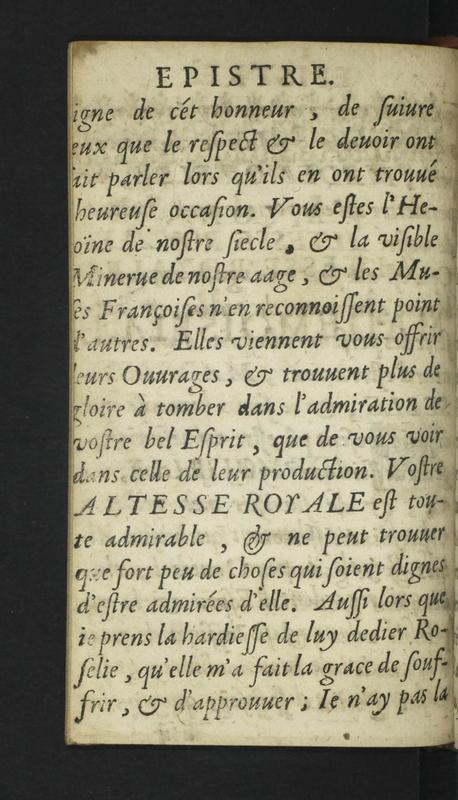 EPISTRE.
igne de cét honneur , de ſuiure
eux que le reſpect & le deuoir ont
ait parler lors qu'ils en ont trouué
heureuſe occaſion. Vous eſtes l'He-
oïne de noſtre ſiecle , & la viſible
Minerue de noſtre aage , & les Mu-
ſes Françoiſes n'en reconnoiſſent point
d'autres. Elles viennent vous offrir
leurs Ouurages , & trouuent plus de
gloire à tomber dans l'admiration de
voſtre bel Eſprit , que de vous voir
dans celle de leur production. Voſtre
ALTESSE ROYALE eſt tou-
te admirable , & ne peut trouuer
que fort peu de choſes qui ſoient dignes
d'eſtre admirées d'elle. Auſſi lors que
ie prens la hardieſſe de luy dedier Ro-
ſelie , qu'elle m'a fait la grace de ſouf-
frir , & d'approuuer ; Ie n'ay pas la